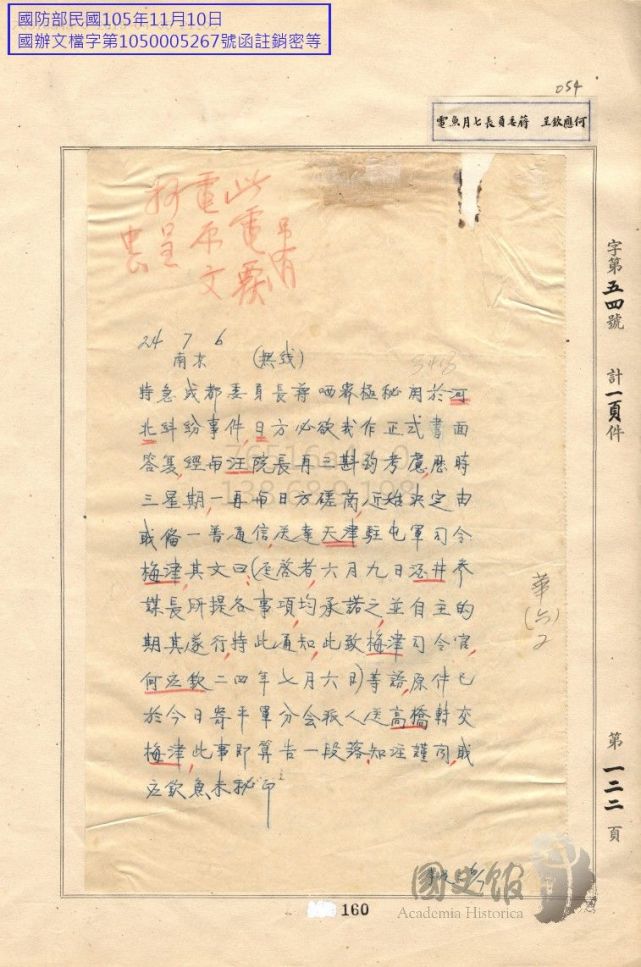 國防部民國105年11月10日
國辦文檔字第1050005267號函註銷密等
054
何應欽呈 蔣委員長七月魚電
此電要
電原文
抄呈
24 7 6
南京 (無线)
特急成都委員長蔣 密極秘関於河
北糾紛事件,日方必欲我作正式書面
答复,經与汪院長再三斟酌考慮,歷時
三星期,一再与日方磋商,近始決定由
我備一普通信,送達天津駐屯軍司令
梅津,其文曰,(逕啓者,六月九日酒井參
謀長所提各事項,均承諾之,並自主的
期其遂行,特此通知,此致梅津司令官,
何应欽二四年七月六日)等語,原件已
於今日寄平軍分会派人送高橋轉交
梅津,此事即算告一段落,知注謹聞,職
应欽魚未秘印
字第五四號 計一頁件 第一二二頁
160
國史館
Academia Historica